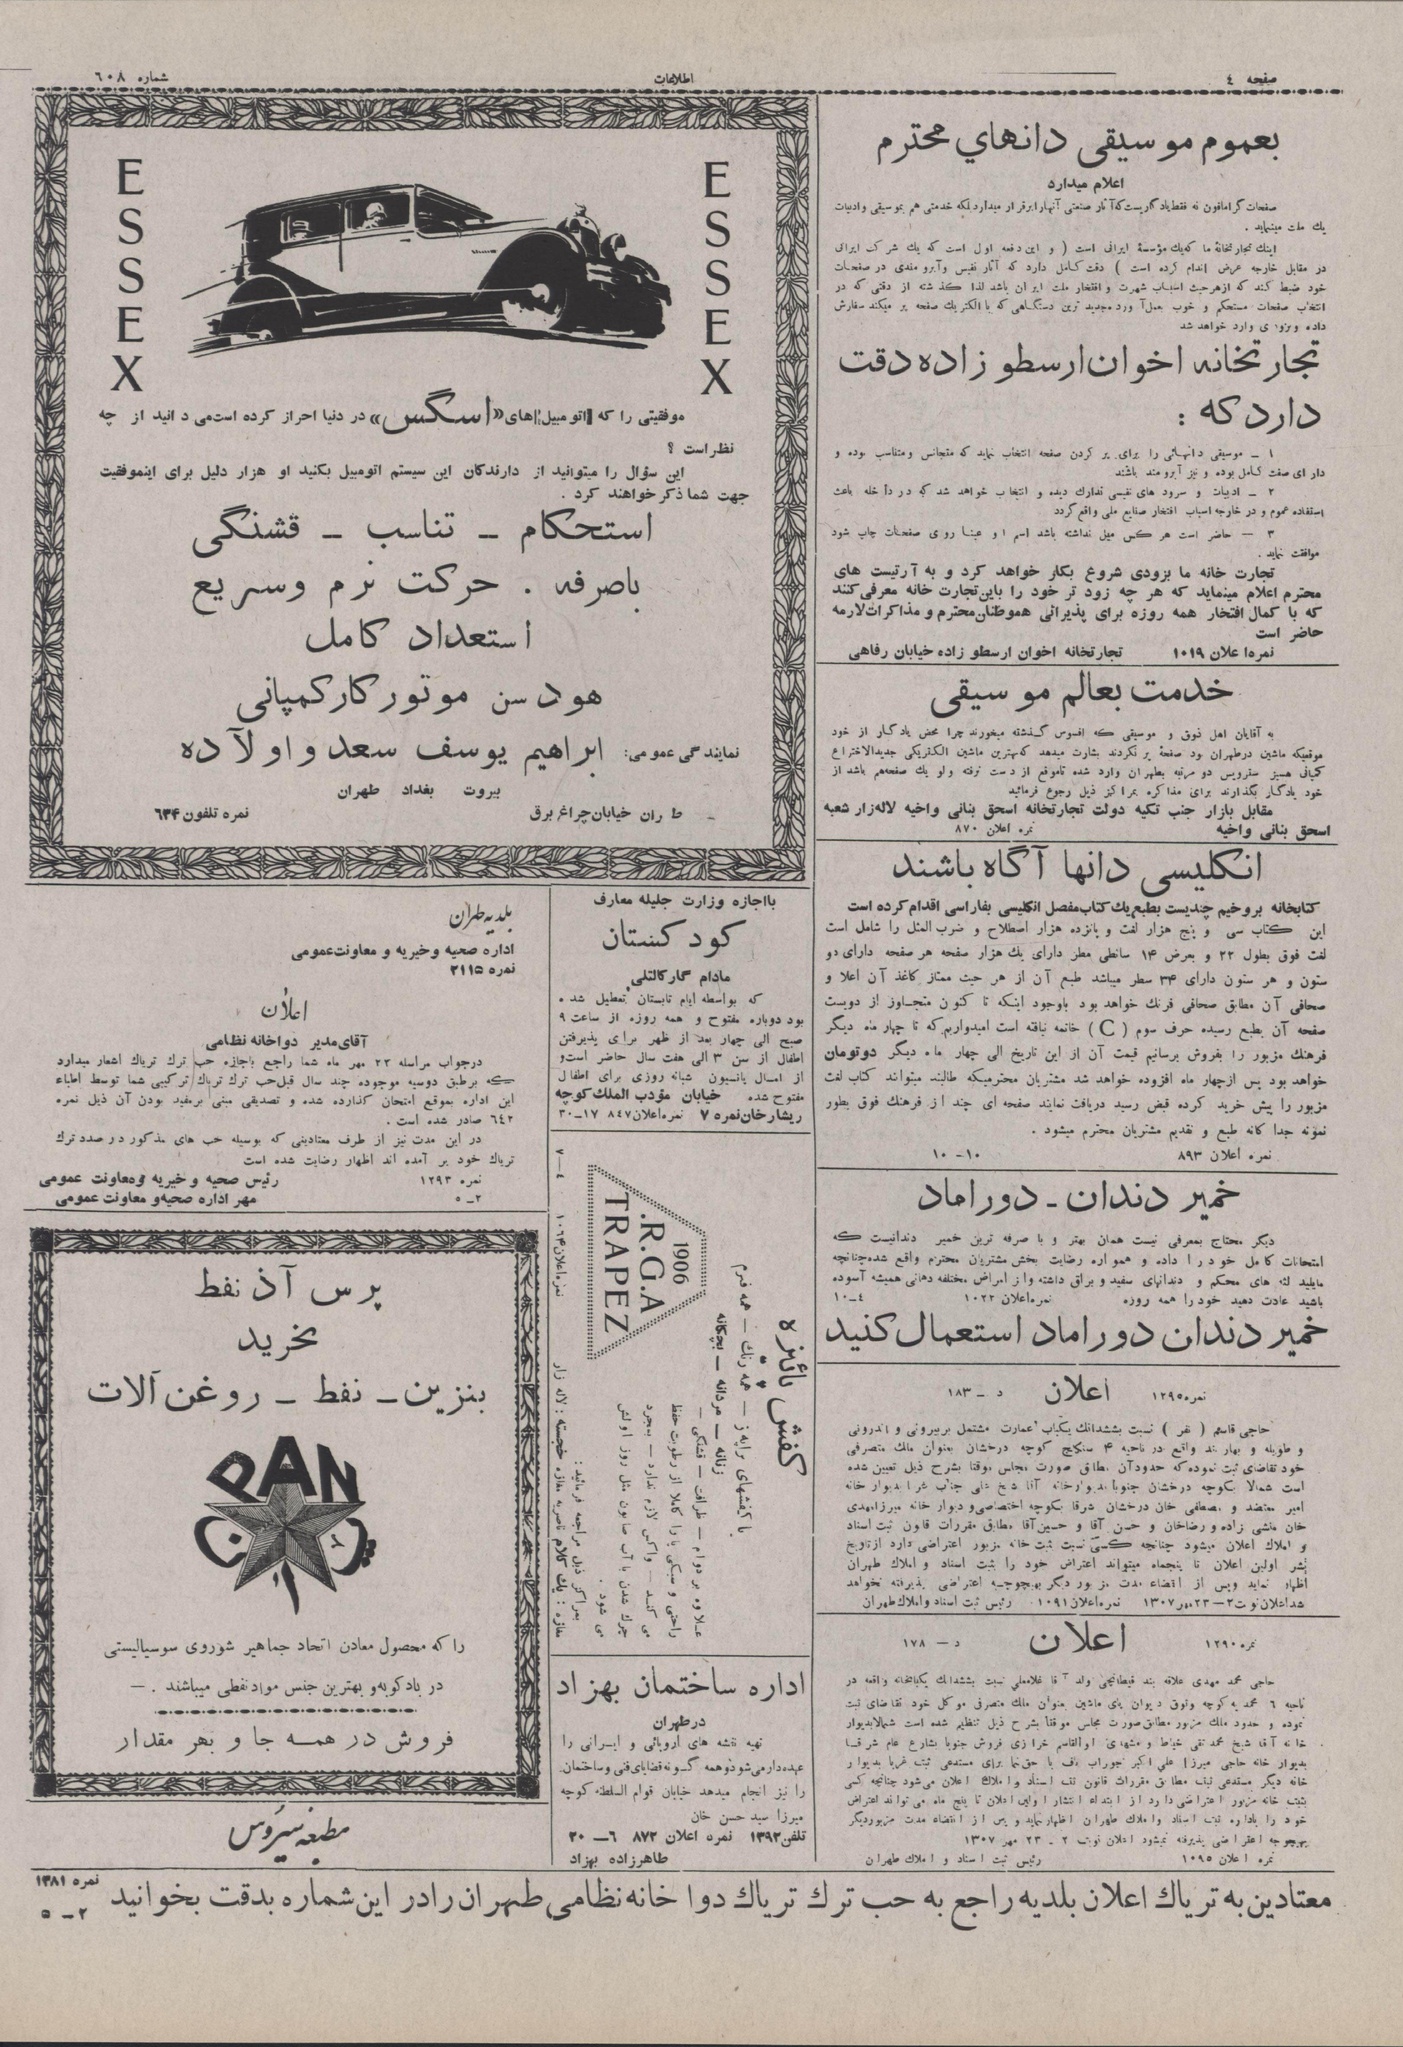 صفحه ٤
اطلاعات
شماره ٦٠٨
بعموم موسیقی دانهاي محترم
اعلام میدارد
صفحات گرامافون نه فقط یادگاریست که آثار صنعتی آنها را برقرار میدارد بلکه خدمتی هم بموسیقی و ادبیات
یك ملت مینماید .
اینك تجارتخانهٔ ما که یك مؤسسهٔ ایرانی است ( و این دفعه اول است که یك شرکت ایرانی
در مقابل خارجه عرض اندام کرده است ) دقت کامل دارد که آثار نفیس و آبرومندی در صفحات
خود ضبط کند که از هر حیث اسباب شهرت و افتخار ملت ایران باشد لذا گذشته از دقتی که در
انتخاب صفحات مستحکم و خوب بعمل آورد مجدید ترین دستگاهی که با الکتریك صفحه پر میکند سفارش
داده و بزودی وارد خواهد شد
تجارتخانه اخوان ارسطو زاده دقت
دارد که :
١ ـ موسیقی دانهائی را برای پر کردن صفحه انتخاب نماید که متجانس و متناسب بوده و
دارای صفت کامل بوده و نیز آبرومند باشند
٢ ـ ادبیات و سرود های نفیسی تدارك دیده و انتخاب خواهد شد که در داخله باعث
استفاده عموم و در خارجه اسباب افتخار صنایع ملی واقع گردد
٣ — حاضر است هر کس میل نداشته باشد اسم او عینا روی صفحات چاپ شود
موافقت نماید .
تجارت خانه ما بزودی شروع بکار خواهد کرد و به آرتیست های
محترم اعلام مینماید که هر چه زود تر خود را باین تجارت خانه معرفی کنند
که با کمال افتخار همه روزه برای پذیرائی هموطنان محترم و مذاکرات لازمه
حاضر است
نمره اعلان ١٠١٩ تجارتخانه اخوان ارسطو زاده خیابان رفاهی
خدمت بعالم موسیقی
به آقایان اهل ذوق و موسیقی که افسوس گذشته میخورند چرا محض یادگار از خود
موقعیکه ماشین در طهران بود صفحهٔ پر نکردند بشارت میدهد که بهترین ماشین الکتریکی جدید الاختراع
کمپانی هیستر سرویس دو مرتبه بطهران وارد شده تا موقع از دست نرفته ولو یك صفحه هم باشد از
خود یادگار بگذارند برای مذاکره بمراکز ذیل رجوع فرمائید
مقابل بازار جنب تکیه دولت تجارتخانه اسحق بنانی واخیه لاله زار شعبه
اسحق بنانی واخیه نمره اعلان ٨٧٠
انکلیسی دانها آگاه باشند
کتابخانه بروخیم چندیست بطبع یك کتاب مفصل انکلیسی بفارسی اقدام کرده است
این کتاب سی و پنج هزار لغت و پانزده هزار اصطلاح و ضرب المثل را شامل است
لغت فوق بطول ٢٢ و بعرض ١۴ سانطی مطر دارای یك هزار صفحه هر صفحه دارای دو
ستون و هر ستون دارای ٣۴ سطر میباشد طبع آن از هر حیث ممتاز کاغذ آن اعلا و
صحافی آن مطابق صحافی فرنك خواهد بود باوجود اینکه تا کنون متجاوز از دویست
صفحه آن بطبع رسیده حرف سوم ( C ) خاتمه نیافته است امیدواریم که تا چهار ماه دیگر
فرهنك مزبور را بفروش برسانیم قیمت آن از این تاریخ الی چهار ماه دیگر دوتومان
خواهد بود پس از چهار ماه افزوده خواهد شد مشتریان محترمیکه طالبند میتوانند کتاب لغت
مزبور را پیش خرید کرده قبض رسید دریافت نمایند صفحه ای چند از فرهنك فوق بطور
نمونه جدا گانه طبع و تقدیم مشتریان محترم میشود .
نمره اعلان ٨٩٣ ١٠ - ١٠
خمیر دندان ـ دوراماد
دیگر محتاج بمعرفی نیست همان بهتر و با صرفه ترین خمیر دندانیست که
امتحانات کامل خود را داده و همواره رضایت بخش مشتریان محترم واقع شده چنانچه
مایلید لثه های محکم و دندانهای سفید و براق داشته واز امراض مختلفه دهانی همیشه آسوده
باشید عادت دهید خود را همه روزه نمره اعلان ١٠٢٢ ٤ - ١٠
خمیر دندان دوراماد استعمال کنید
نمره ١٢٩٥ اعلان د — ١٨٣
حاجی قاسم ( نفر ) نسبت بششدانك یکباب عمارت مشتمل بر بیرونی و اندرونی
و طویله و بهاربند واقع در ناحیه ۴ سنکلج کوچه درخشان بعنوان مالك متصرفی
خود تقاضای ثبت نموده که حدود آن مطابق صورت مجلس موقتا بشرح ذیل تعیین شده
است شمالا بکوچه درخشان جنوبا بدیوار خانه آقا شیخ علی غربا بدیوار خانه
امیر معتضد و مصطفی خان درخشان شرقا بکوچه اختصاصی و دیوار خانه میرزا مهدی
خان منشی زاده و رضاخان و حسن آقا و حسین آقا مطابق مقررات قانون ثبت اسناد
و املاك اعلان میشود چنانچه کسی نسبت بثبت خانه مزبور اعتراضی دارد از تاریخ
نشر اولین اعلان تا پنجماه میتواند اعتراض خود را بثبت اسناد و املاك طهران
اظهار نماید و پس از انقضاء مدت مزبور دیگر بهیچوجه اعتراضی پذیرفته نخواهد
شد اعلان نوبت ٢—٢٣ مهر ١٣٠٧ نمره اعلان ١٠٩١ رئیس ثبت اسناد و املاك طهران
نمره ١٢٩٠ اعلان د — ١٧٨
حاجی محمد مهدی علاقه بند قیطانچی ولد آقا غلامعلی نسبت بششدانك یکبابخانه واقعه در
ناحیه ٦ محمدیه کوچه وثوق دیوان پای ماشین بعنوان ملك متصرفی موکل خود تقاضای ثبت
نموده و حدود ملك مزبور مطابق صورت مجلس موقتا بشرح ذیل تنظیم شده است شمالا بدیوار
خانه آقا شیخ محمد تقی خیاط و مشهدی ابوالقاسم خرازی فروش جنوبا بشارع عام شرقا
بدیوار خانه حاجی میرزا علی اکبر جوراب باف با حق نما برای مستدعی ثبت غربا بدیوار
خانه دیگر مستدعی ثبت مطابق مقررات قانون ثبت اسناد و املاك اعلان می شود چنانچه کسی
بثبت خانه مزبور اعتراضی دارد از ابتداء انتشار اولین اعلان تا پنج ماه می تواند اعتراض
خود را باداره ثبت اسناد و املاك طهران اظهار نماید و پس از انقضاء مدت مزبور دیگر
بهیچوجه اعتراضی پذیرفته نمیشود اعلان نوبت ٢ ـ ٢٣ مهر ١٣٠٧
نمره اعلان ١٠٩٥ رئیس ثبت اسناد و املاك طهران
ESSEX
ESSEX
موفقیتی را که اتومبیل های «اسگس» در دنیا احراز کرده است می دانید از چه
نظر است ؟
این سؤال را میتوانید از دارندکان این سیستم اتومبیل بکنید او هزار دلیل برای اینموفقیت
جهت شما ذکر خواهند کرد .
استحکام ـ تناسب ـ قشنگی
باصرفه . حرکت نرم وسریع
استعداد کامل
هودسن موتورکارکمپانی
نمایندگی عمومی: ابراهیم یوسف سعد و اولآده
بیروت بغداد طهران
طهران خیابان چراغ برق نمره تلفون ٦٣۴
بااجازه وزارت جلیله معارف
کودکستان
مادام گارکالتلی
که بواسطه ایام تابستان تعطیل شده
بود دوباره مفتوح و همه روزه از ساعت ٩
صبح الی چهار بعد از ظهر برای پذیرفتن
اطفال از سن ٣ الی هفت سال حاضر است و
از امسال پانسیون شبانه روزی برای اطفال
مفتوح شده خیابان مؤدب الملك کوچه
ریشارخان نمره ٧ نمره اعلان ٨۴٧ ١٧—٣٠
بلدیه طهران
اداره صحیه وخیریه و معاونت عمومی
نمره ٢١١۵
اعلان
آقای مدیر دواخانه نظامی
درجواب مراسله ٢٣ مهر ماه شما راجع باجازه حب ترك تریاك اشعار میدارد
که برطبق دوسیه موجوده چند سال قبل حب ترك تریاك ترکیبی شما توسط اطباء
این اداره بموقع امتحان گذارده شده و تصدیقی مبنی برمفید بودن آن ذیل نمره
٦٤٢ صادر شده است .
در این مدت نیز از طرف معتادینی که بوسیله حب های مذکور در صدد ترك
تریاك خود بر آمده اند اظهار رضایت شده است
نمره ١٢٩٣ رئیس صحیه و خیریه و معاونت عمومی
٢—۵ مهر اداره صحیه و معاونت عمومی
کفش پائیزه
با کفشهای تراپز — همه رنك — همه فرم
زنانه — مردانه — بچگانه
1906
R.G.A.
TRAPEZ
علاوه بر دوام — ظرافت — قشنگی —
راحتی و سبکی پا را کاملا از رطوبت حفظ
می کند — واکس لازم ندارد — بمجرد
چرك شدن با آب صابون مثل روز اولش
می شود .
بمراکز ذیل مراجعه فرمائید :
مغازه : یك کلام ناصریه مغازه خجسته : لاله زار
نمره اعلان ١٠٦۴ ٤—٧
اداره ساختمان بهزاد
درطهران
تهیه نقشه های اروپائی و ایرانی را
عهده دار می شود و همه گونه قضایای فنی و ساختمان
را نیز انجام میدهد خیابان قوام السلطنه کوچه
میرزا سید حسن خان
تلفن ١٣٩٢ نمره اعلان ٨٧٢ ٦—٢٠
طاهرزاده بهزاد
پرس آذ نفط
بخرید
بنزین ـ نفط ـ روغن آلات
را که محصول معادن اتحاد جماهیر شوروی سوسیالیستی
در بادکوبه و بهترین جنس مواد نفطی میباشند . —
فروش در همه جا و بهر مقدار
مطبعه سیروس
معتادین به تریاك اعلان بلدیه راجع به حب ترك تریاك دوا خانه نظامی طهران را در این شماره بدقت بخوانید نمره ١٣٨١
٢—٥